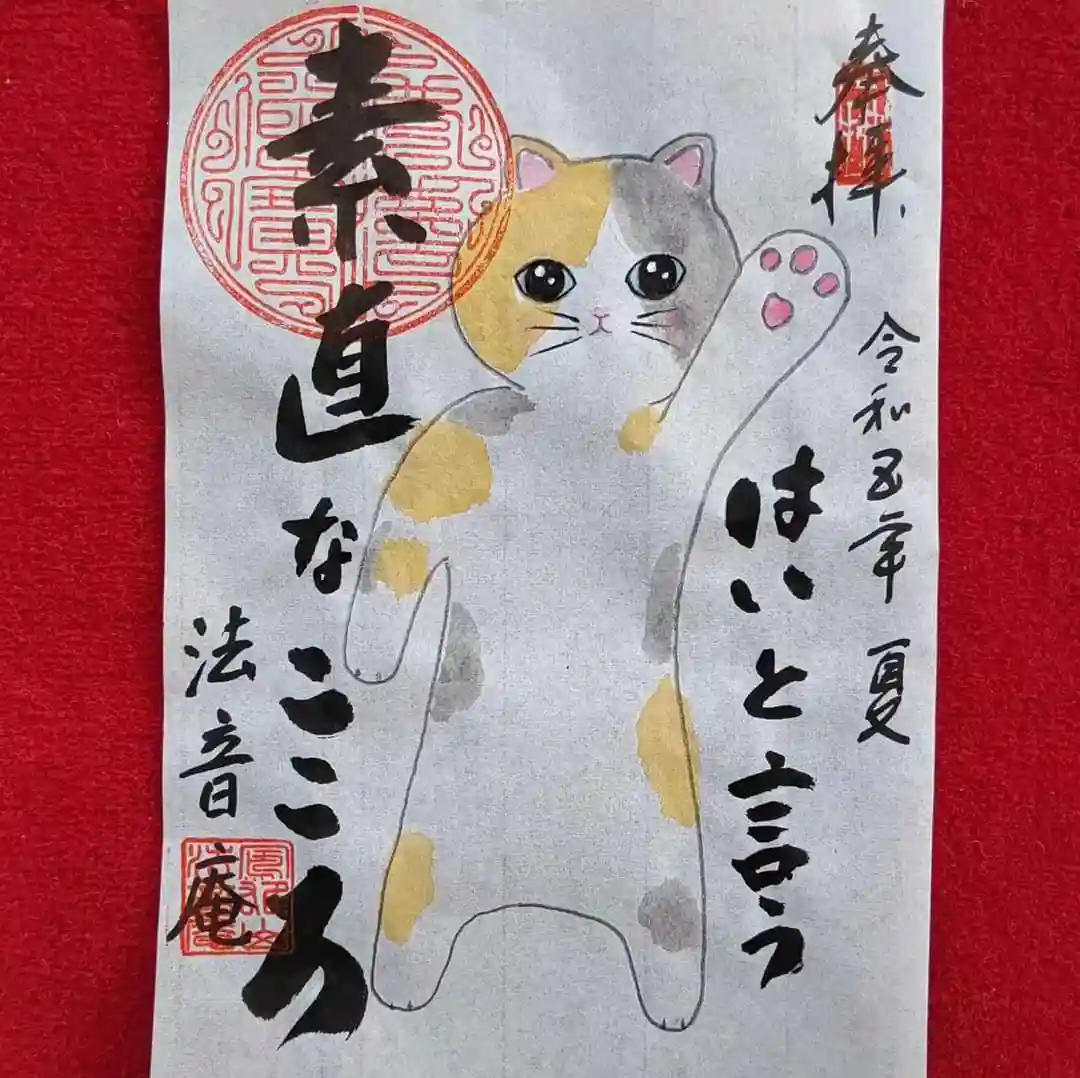 奉拝
令和五年 夏
はいと言う
素直なこころ
法音庵